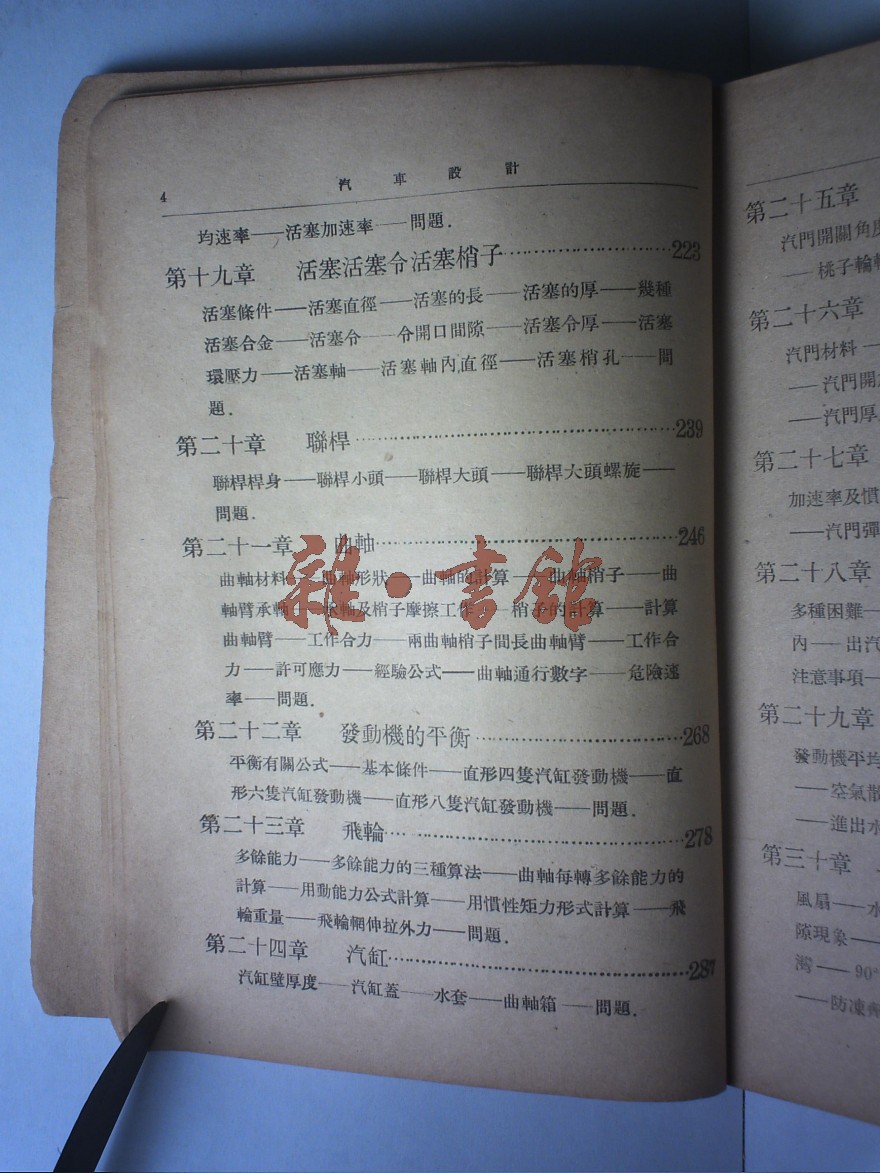 4
汽車設計
均速率——活塞加速率——問題.
第十九章 活塞活塞令活塞梢子……………223
活塞條件——活塞直徑——活塞的長——活塞的厚——幾種
活塞合金——活塞令——令開口間隙——活塞令厚——活塞
環壓力——活塞軸——活塞軸內直徑——活塞梢孔——問
題.
第二十章 聯桿……………239
聯桿桿身——聯桿小頭——聯桿大頭——聯桿大頭螺旋——
問題.
第二十一章 曲軸……………246
曲軸材料——曲軸形狀——曲軸的計算——曲軸梢子——曲
軸臂承軸——承軸及梢子摩擦工作——梢子的計算——計算
曲軸臂——工作合力——兩曲軸梢子間長曲軸臂——工作合
力——許可應力——經驗公式——曲軸通行數字——危險速
率——問題.
第二十二章 發動機的平衡……………268
平衡有關公式——基本條件——直形四隻汽缸發動機——直
形六隻汽缸發動機——直形八隻汽缸發動機——問題.
第二十三章 飛輪……………278
多餘能力——多餘能力的三種算法——曲軸每轉多餘能力的
計算——用動能力公式計算——用慣性矩力形式計算——飛
輪重量——飛輪輞伸拉外力——問題.
第二十四章 汽缸……………287
汽缸壁厚度——汽缸蓋——水套——曲軸箱——問題.
雜·書館
第二十五章
汽門開關角度
——桃子輪
第二十六章
汽門材料——
——汽門開
——汽門厚
第二十七章
加速率及慣
——汽門彈
第二十八章
多種困難——
內——出汽
注意事項——
第二十九章
發動機平均
——空氣散
——進出水
第三十章
風扇——水
隙現象——
灣——90°
——防凍劑